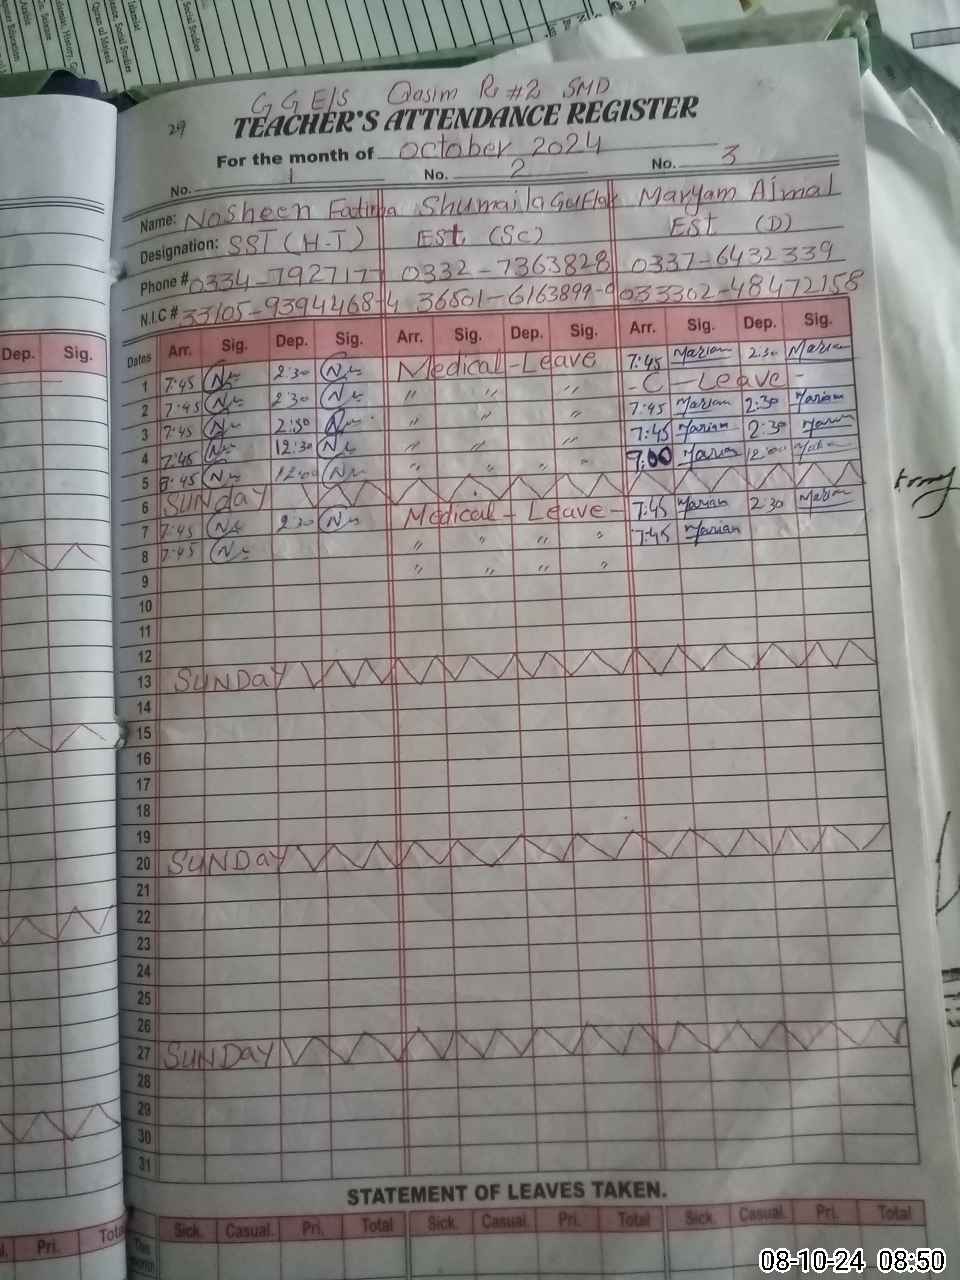 GGE/S Qasim Pr #2 SMD
29
TEACHER'S ATTENDANCE REGISTER
For the month of October 2024
No. 1 No. 2 No. 3
Name: Nosheen Fatima Shumaila Maryam Ajmal
Designation: SST (H-T) EST (Sc) EST (D)
Phone # 0334-7927177 0332-7363828 0337-6432339
N.I.C # 33105-9394468-4 36501-6163899-0 033302-48472158
Dates Arr. Sig. Dep. Sig. Arr. Sig. Dep. Sig. Arr. Sig. Dep. Sig.
1 7:45 2:30 Medical-Leave 7:45 Mariam 2:30 Mariam
2 7:45 2:30 " " " - C - Leave -
3 7:45 2:30 " " " 7:45 Mariam 2:30 Mariam
4 7:45 12:30 " " " 7:45 Mariam 2:30
5 12:00 " " " " 7:00 12:00
6 SUNDAY
7 7:45 2:30 Medical - Leave - 7:45 Maryam 2:30
8 7:45 " " " " 7:45 Maryam
9 " " " "
10
11
12
13 SUNDAY
14
15
16
17
18
19
20 SUNDAY
21
22
23
24
25
26
27 SUNDAY
28
29
30
31
STATEMENT OF LEAVES TAKEN.
Sick. Casual. Pri. Total Sick. Casual. Pri. Total Sick. Casual. Pri. Total
Dep. Sig.
Pri. Total
Social Studies
08-10-24 08:50